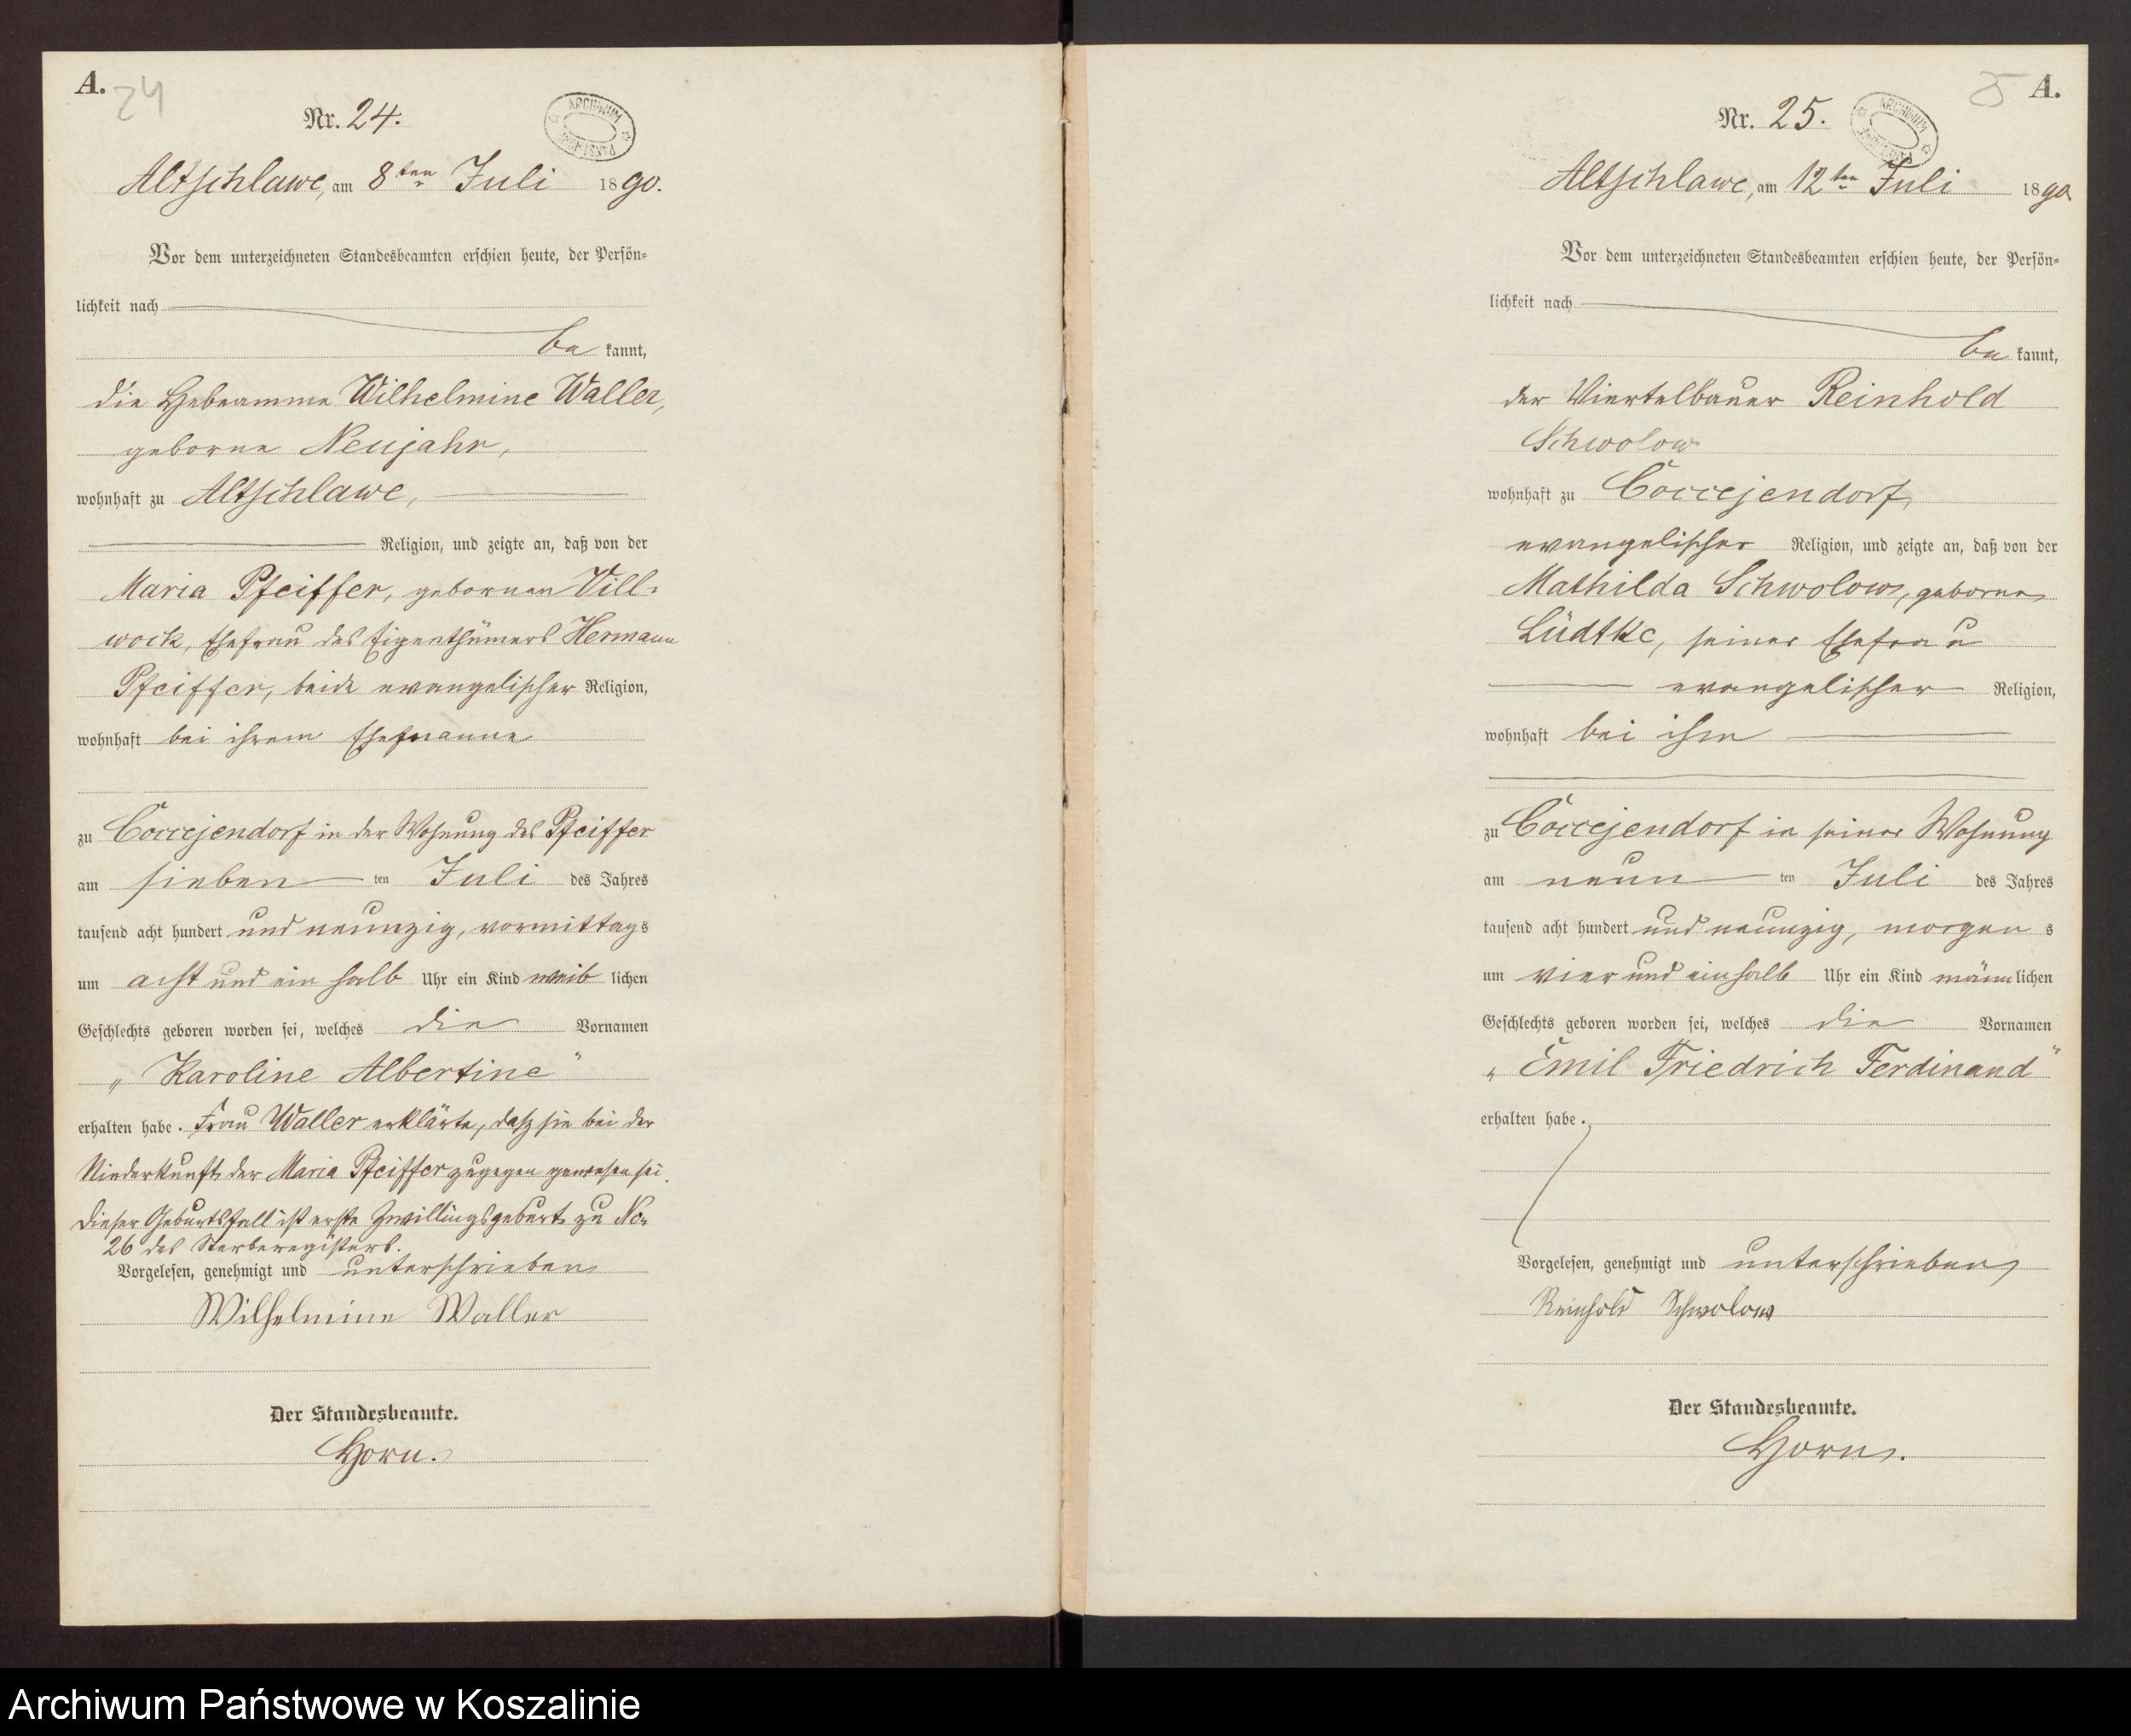 A.
24
Nr. 24.
ARCHIWUM PAŃSTWOWE
Altschlawe, am 8ten Juli 1890.
Vor dem unterzeichneten Standesbeamten erschien heute, der Persön-
lichkeit nach
be kannt,
die Hebeamme Wilhelmine Waller,
geborne Neujahr,
wohnhaft zu Altschlawe,
Religion, und zeigte an, daß von der
Maria Pfeiffer, gebornen Vill-
wock, Ehefrau des Eigenthümers Hermann
Pfeiffer, beide evangelischer Religion,
wohnhaft bei ihrem Ehemanne
zu Coccejendorf in der Wohnung des Pfeiffer
am sieben ten Juli des Jahres
tausend acht hundert und neunzig, vormittags
um acht und ein halb Uhr ein Kind weib lichen
Geschlechts geboren worden sei, welches die Vornamen
„Karoline Albertine“
erhalten habe. Frau Waller erklärte, daß sie bei der
Niederkunft der Maria Pfeiffer zugegen gewesen sei.
Dieser Geburtsfall ist erste Zwillingsgeburt zu No.
26 des Sterberegisters.
Vorgelesen, genehmigt und unterschrieben
Wilhelmine Waller
Der Standesbeamte.
Horn.
25
A.
Nr. 25.
ARCHIWUM PAŃSTWOWE
Altschlawe, am 12ten Juli 1890
Vor dem unterzeichneten Standesbeamten erschien heute, der Persön-
lichkeit nach
be kannt,
der Viertelbauer Reinhold
Schwolow
wohnhaft zu Coccejendorf,
evangelischer Religion, und zeigte an, daß von der
Mathilda Schwolow, geborne
Lüdtke, seiner Ehefrau
evangelischer Religion,
wohnhaft bei ihm
zu Coccejendorf in seiner Wohnung
am neun ten Juli des Jahres
tausend acht hundert und neunzig, morgen s
um vier und einhalb Uhr ein Kind männ lichen
Geschlechts geboren worden sei, welches die Vornamen
„Emil Friedrich Ferdinand“
erhalten habe.
Vorgelesen, genehmigt und unterschrieben
Reinhold Schwolow
Der Standesbeamte.
Horn.
Archiwum Państwowe w Koszalinie